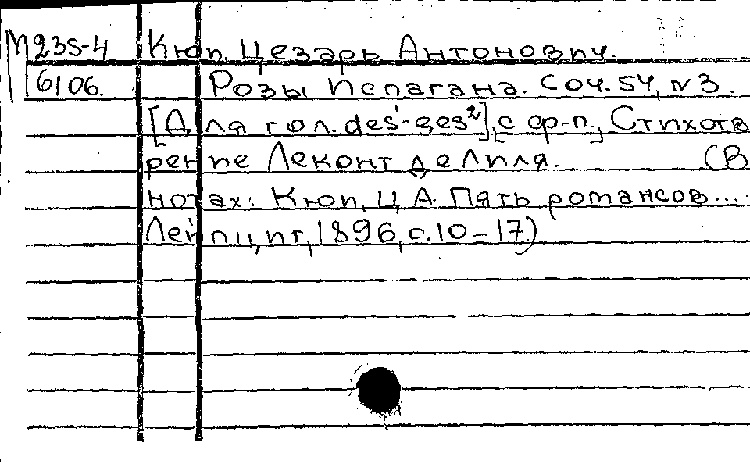 М235-4 Кюи Цезарь Антонович.
6106. Розы Испагана. Соч. 54, N 3.
[Для гол. des'-ges²], [с ф-п.], Стихотв
рение Леконт де Лиля. (В
нотах: Кюи, Ц. А. Пять романсов...
Лейпциг, 1896, с. 10-17)